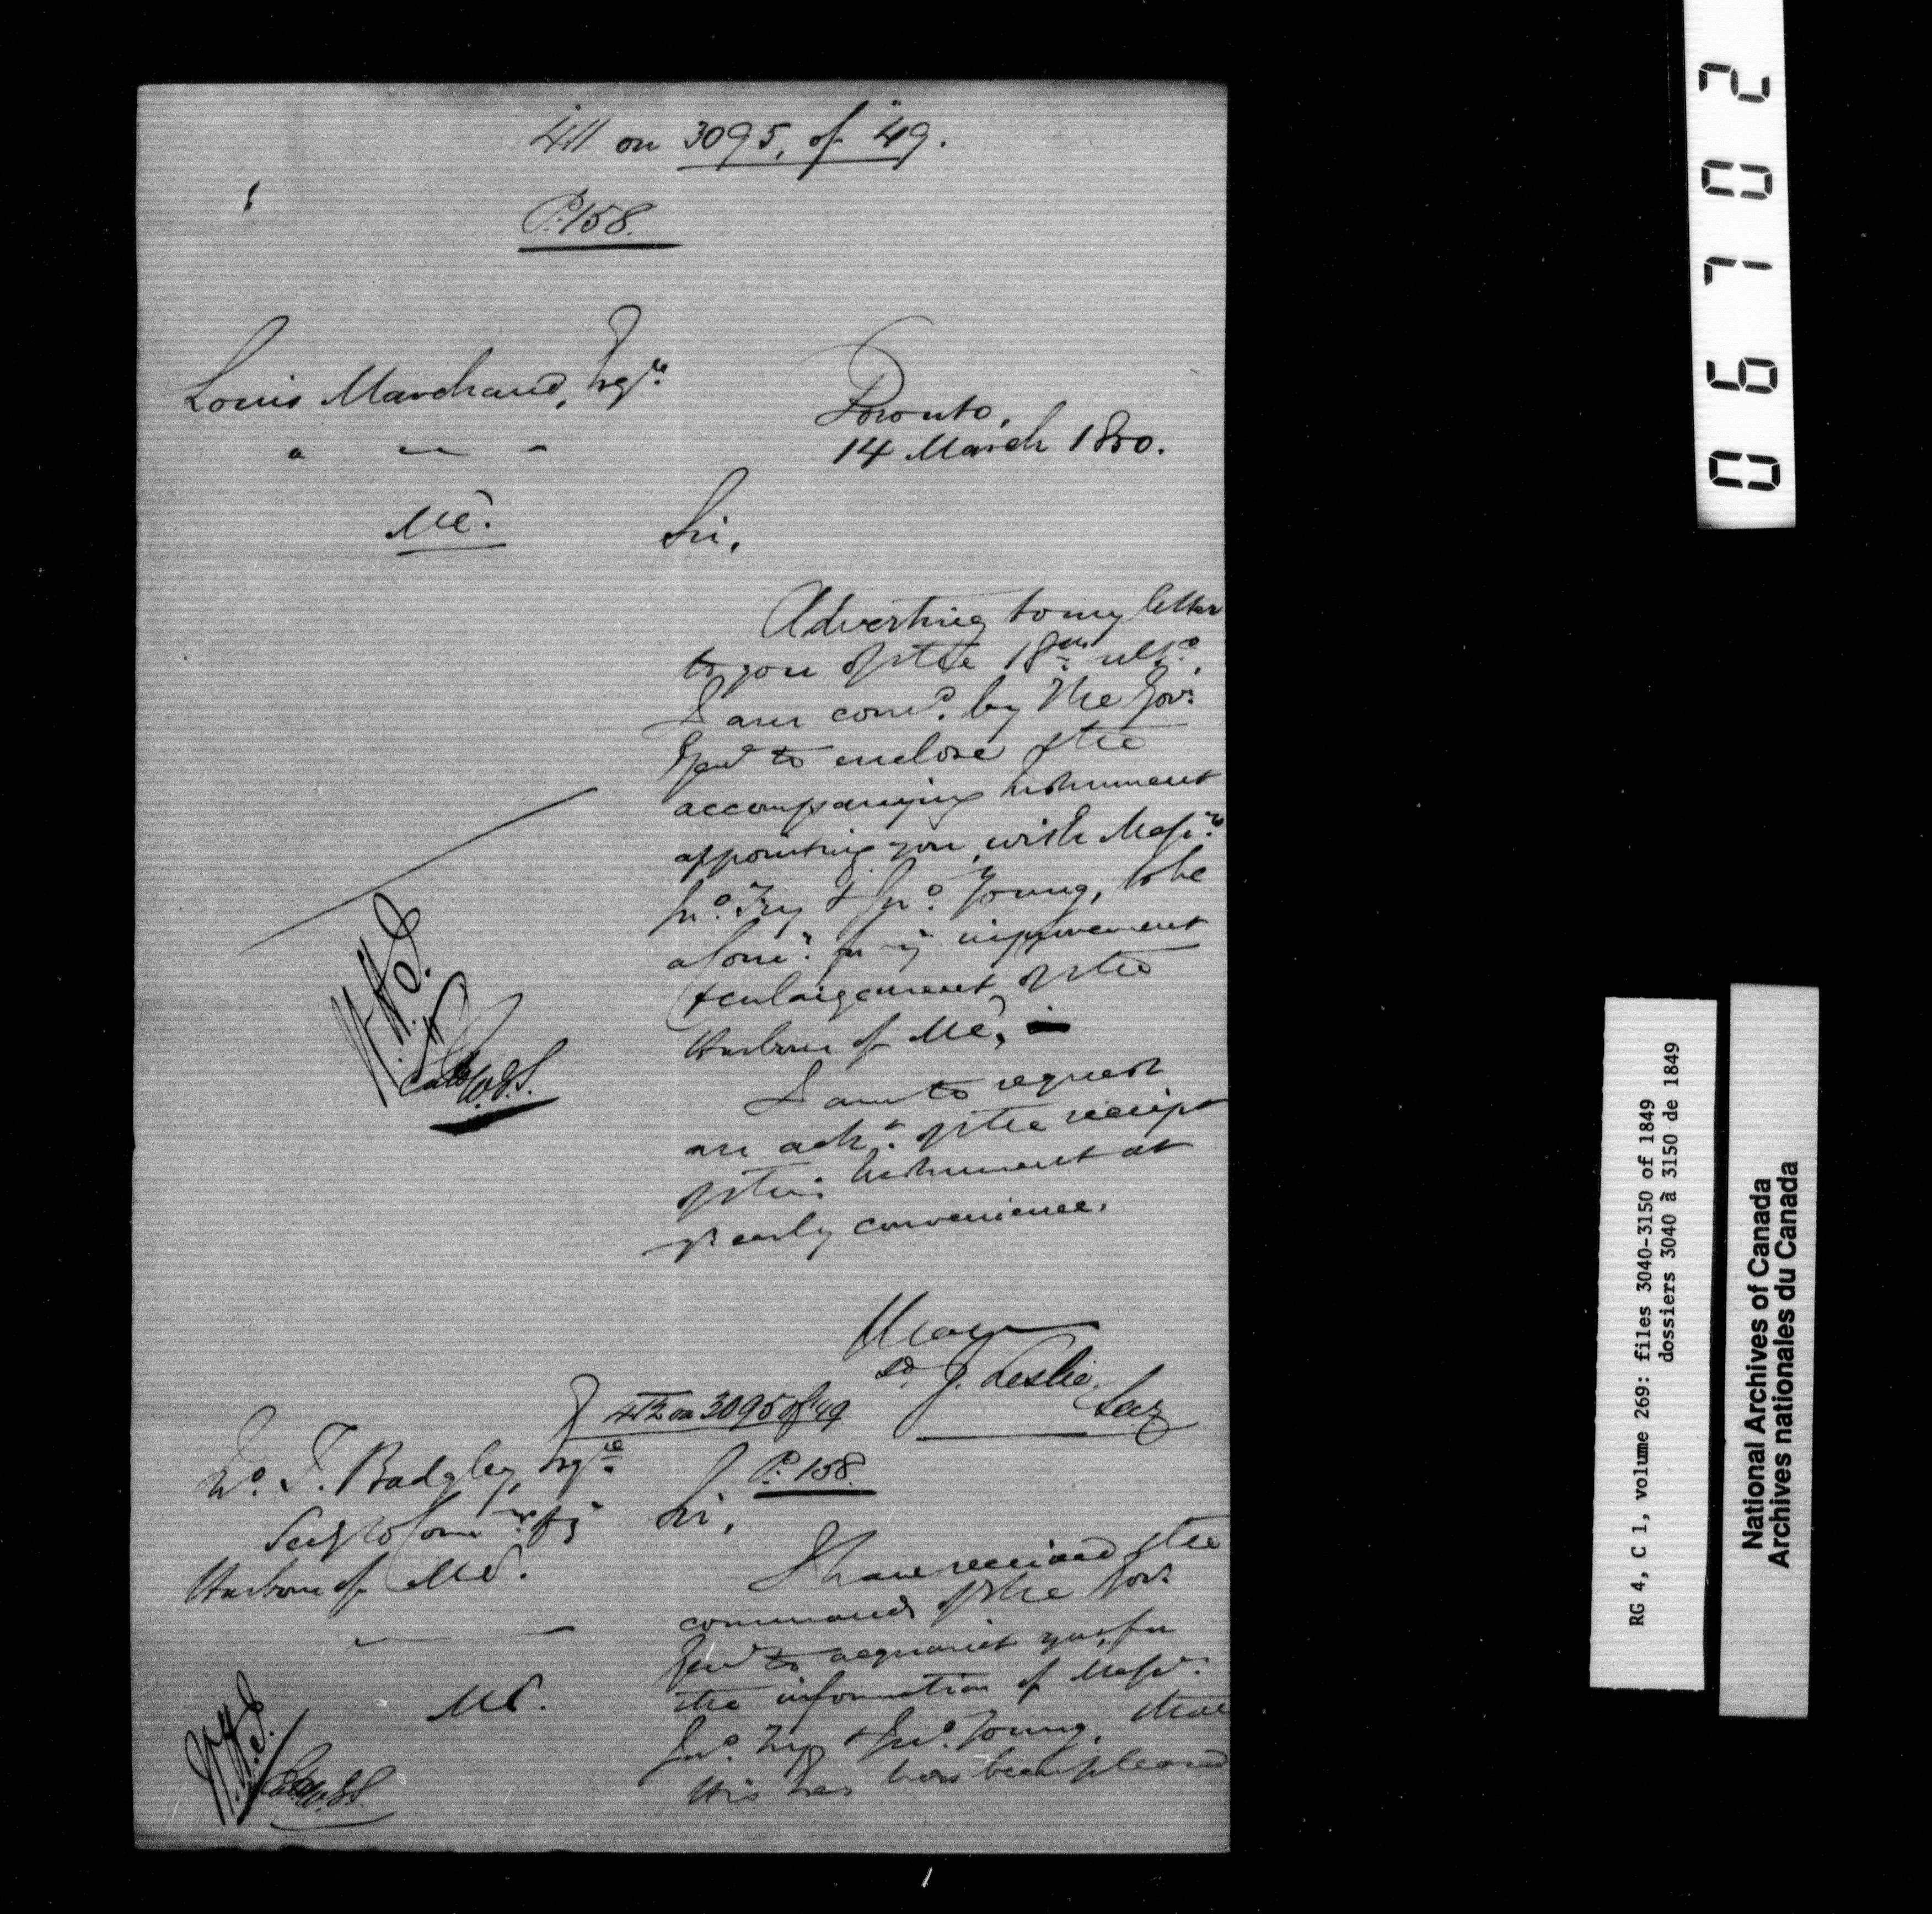 411 on 3095, of 49.
P. 158.
Louis Marchand, Esqre
Toronto,
14 March 1850.
Ml.
Sir,
Adverting to my letter
to you of the 18th ulto.
I am comd. by The Govr.
Genl to enclose the
accompanying Instrument
appointing you, with Messrs.
Jno. Try & Jno. Young, to be
a Comr. for ye improvement
& enlargement of the
Harbour of Ml,
I am to request
an ackt. of the receipt
of this Instrument at
yr early convenience.
I have
sd. J. Leslie
Secy
412 on 3095 of 49
P. 158.
F. Badgley, Esqre.
Secy to Comrs. for ye
Harbour of Ml.
Ml.
Sir,
I have received the
commands of the Govr.
Genl to acquaint you, for
the information of Messrs.
Jno. Try & Jno. Young, that
His Exy has been pleased
W.H.J.
W.H.J.
0 6 7 0 2
RG 4, C 1, volume 269: files 3040-3150 of 1849
dossiers 3040 à 3150 de 1849
National Archives of Canada
Archives nationales du Canada